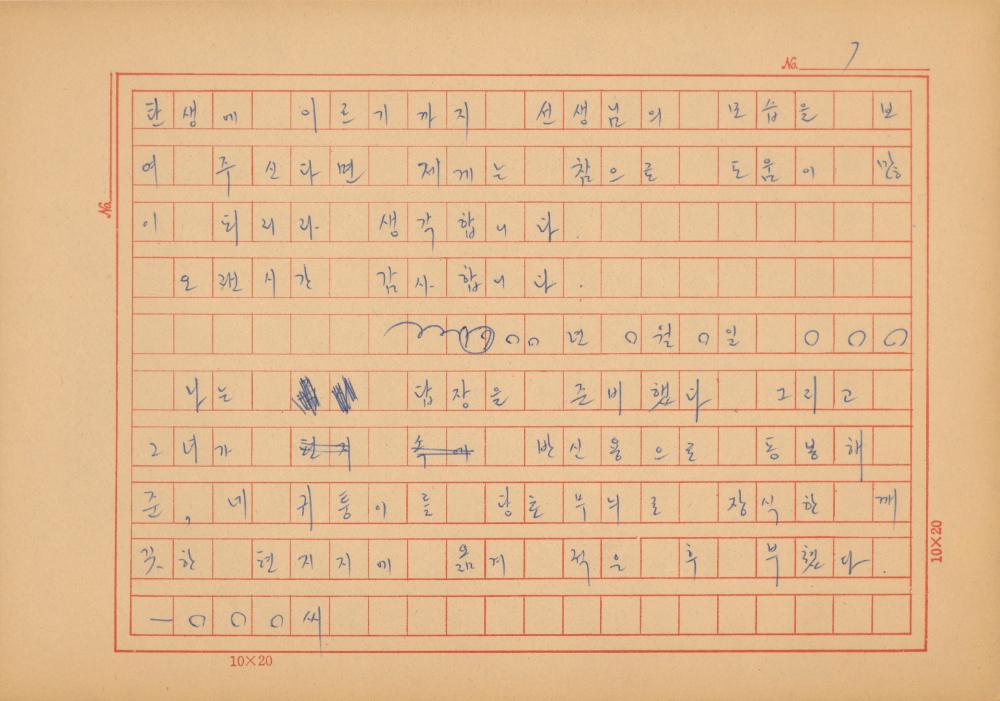 No. 7
탄생에 이르기까지 선생님의 모습을 보
여 주신다면 제게는 참으로 도움이 많
이 되리라 생각합니다.
오랜시간 감사합니다.
00년 0월 0일 000
나는 답장을 준비했다 그리고
그녀가 편지 속에 반신용으로 동봉해
준, 네 귀퉁이를 당초무늬로 장식한 깨
끗한 편지지에 옮겨 적은 후 부쳤다.
—000씨
No.
10×20
10×20